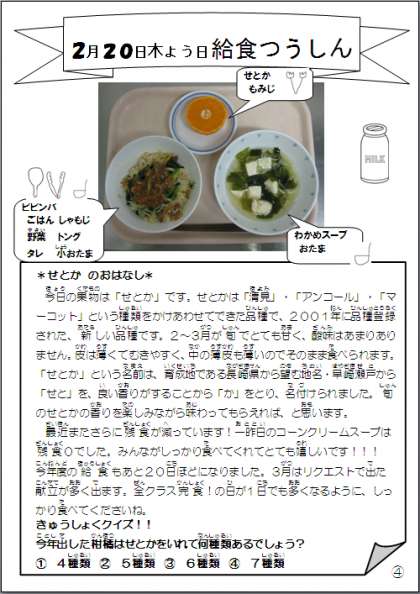 2月20日木よう日給食つうしん
せとか
もみじ
MILK
ビビンバ
ごはん しゃもじ
野菜 トング
タレ 小おたま
わかめスープ
おたま
＊せとか のおはなし＊
今日の果物は「せとか」です。せとかは「清見」・「アンコール」・「マ
ーコット」という種類をかけあわせてできた品種で、２００１年に品種登録
された、新しい品種です。２～３月が旬でとても甘く、酸味はあまりあり
ません。皮は薄くてむきやすく、中の薄皮も薄いのでそのまま食べられます。
「せとか」という名前は、育成地である長崎県から望む地名・早崎瀬戸から
「せと」を、良い香りがすることから「か」をとり、名付けられました。旬
のせとかの香りを楽しみながら味わってもらえれば、と思います。
最近またさらに残食が減っています！一昨日のコーンクリームスープは
残食０りでした。みんながしっかり食べてくれてとても嬉しいです！！！
今年度の給食もあと２０日ほどになりました。３月はリクエストで出た
献立が多く出ます。全クラス完食！の日が１日でも多くなるように、しっ
かり食べてくださいね。
きゅうしょくクイズ！！
今年出した柑橘はせとかをいれて何種類あるでしょう？
① ４種類 ② ５種類 ③ ６種類 ④ ７種類
④